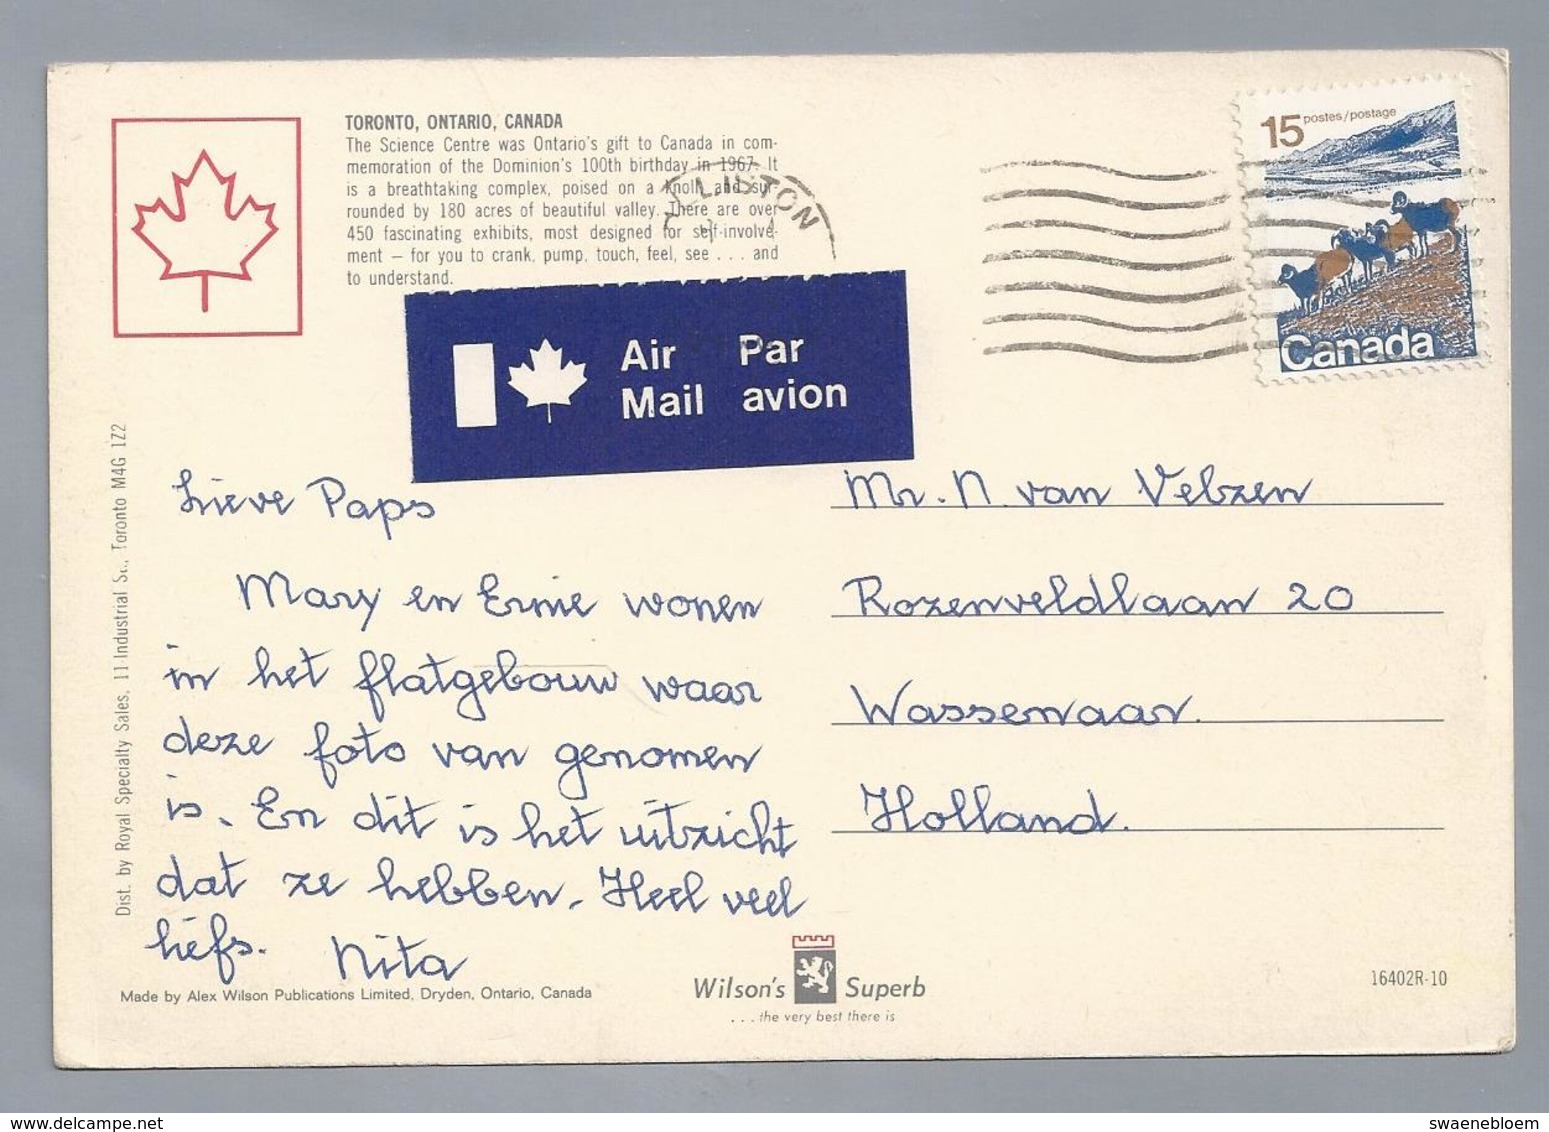 TORONTO, ONTARIO, CANADA
The Science Centre was Ontario's gift to Canada in com-
memoration of the Dominion's 100th birthday in 1967. It
is a breathtaking complex, poised on a knoll and sur-
rounded by 180 acres of beautiful valley. There are over
450 fascinating exhibits, most designed for self-involve-
ment — for you to crank, pump, touch, feel, see . . . and
to understand.
15 postes/postage
Canada
Air Mail
Par avion
Lieve Paps
Mary en Ernie wonen
in het flatgebouw waar
deze foto van genomen
is. En dit is het uitzicht
dat ze hebben. Heel veel
liefs. Nita
Mr. N. van Velzen
Rozenveldlaan 20
Wassenaar.
Holland.
Dist. by Royal Specialty Sales, 11 Industrial St., Toronto M4G 1Z2
Made by Alex Wilson Publications Limited, Dryden, Ontario, Canada
Wilson's Superb
. . . the very best there is
16402R-10
www.delcampe.net
swaenebloem